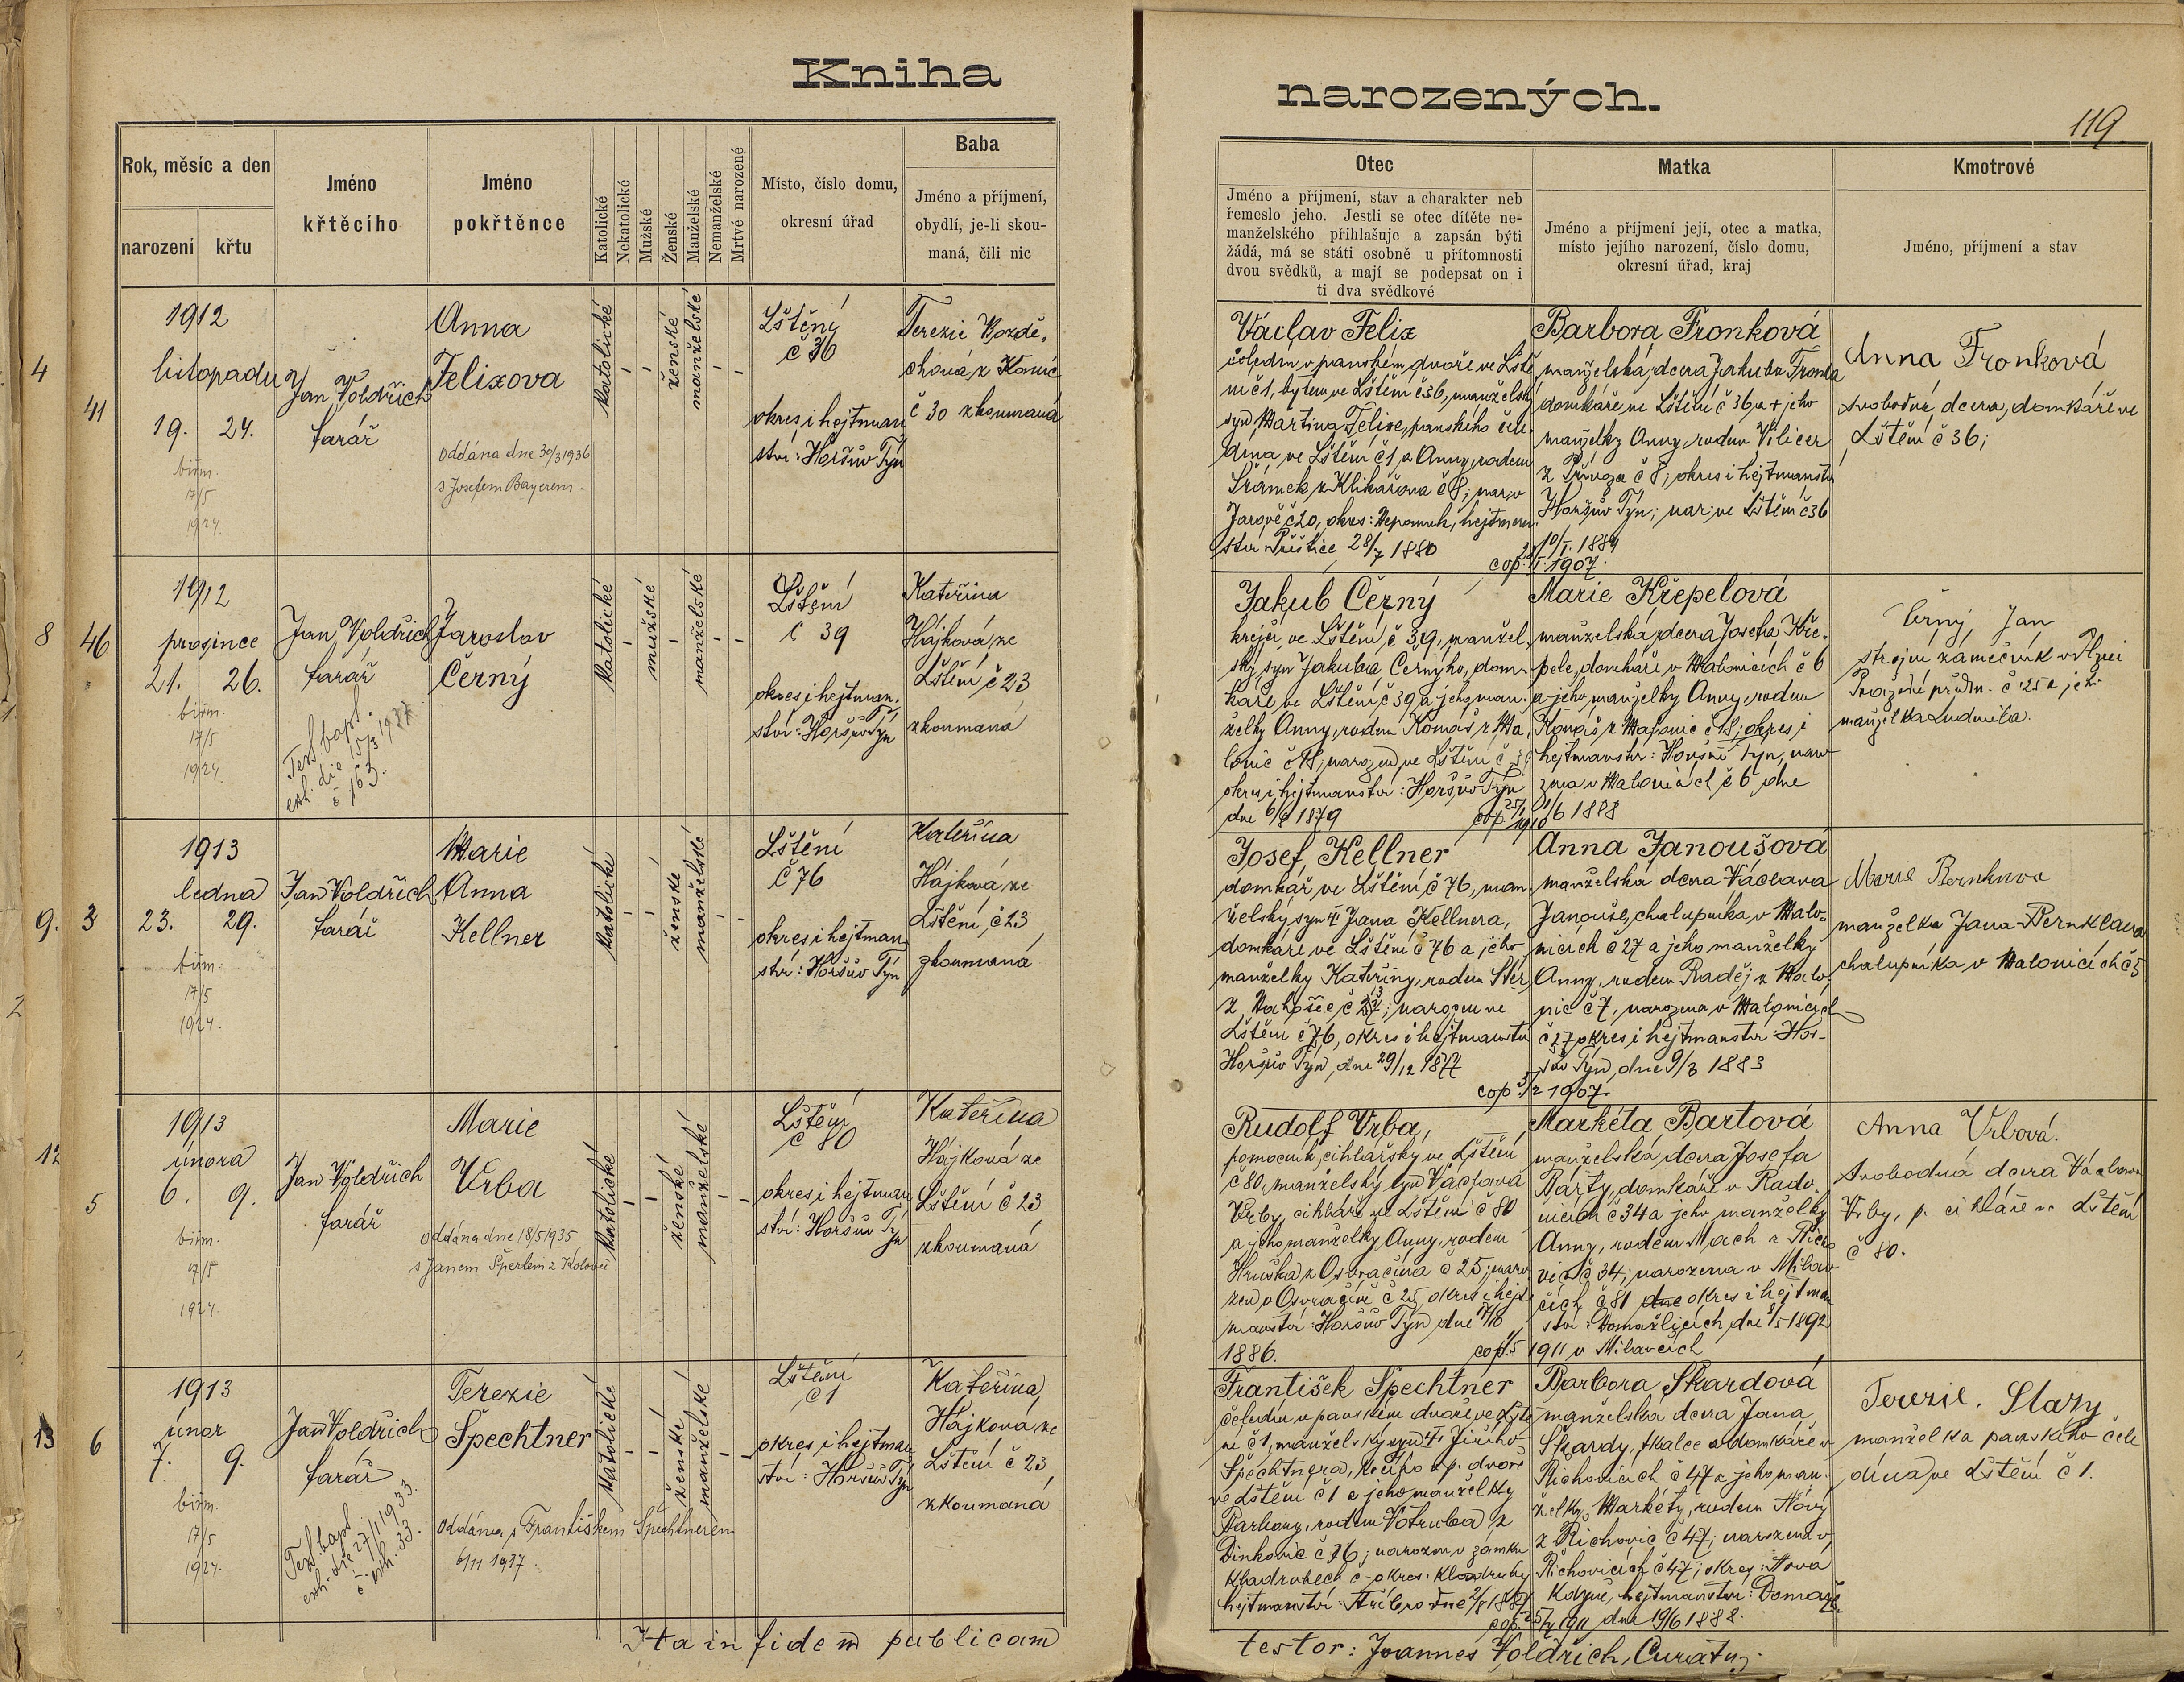 Kniha
narozených.
119
Rok, měsíc a den
narození
křtu
Jméno
křtěcího
Jméno
pokřtěnce
Katolické
Nekatolické
Mužské
Ženské
Manželské
Nemanželské
Mrtvé narozené
Místo, číslo domu,
okresní úřad
Baba
Jméno a příjmení,
obydlí, je-li skou-
maná, čili nic
Otec
Jméno a příjmení, stav a charakter neb
řemeslo jeho. Jestli se otec dítěte ne-
manželského přihlašuje a zapsán býti
žádá, má se státi osobně u přítomnosti
dvou svědků, a mají se podepsat on i
ti dva svědkové
Matka
Jméno a příjmení její, otec a matka,
místo jejího narození, číslo domu,
okresní úřad, kraj
Kmotrové
Jméno, příjmení a stav
4
41
1912
listopadu
19. 24.
biřm.
17/5
1924.
Jan Voldřich
farář
Anna
Felixova
oddána dne 30/3 1936
s Josefem Bayerem
katolické
ženské
manželské
Lštěný
č 36
okres i hejtman
ství: Horšův Týn
Terezie
chová z Konic
č 30 zkoumaná
Václav Felix
čeledín v panském dvoře ve Lště
ní č1, bytem ve Lštění č36, manželský
syn Martina Felixe, panského čele
dína ve Lštění č1, a Anny, rodem
Šrámek z Klikařova č 8; nar. v
Jarově č20, okres: Nepomuk, hejtman
ství Přeštice 28/7 1880
Barbora Fronková
manželská dcera Jakuba Fronka
domkáře ve Lštění č 36 a + jeho
manželky Anny, rodem
č 8; okres i hejtmanství
Horšův Týn; nar. ve Lštění č36
10/I. 1884
cop. 1907.
Anna Fronková
svobodná dcera, domkáře ve
Lštění č 36;
8
46
1912
prosince
21. 26.
biřm.
17/5
1924.
Jan Voldřich
farář
Test. bapt.
exh. die 15/3 1937
č 163.
Jaroslav
Černý
katolické
mužské
manželské
Lštění
č 39
okres i hejtman.
ství: Horšův Týn
Kateřina
Hájková ze
Lštění č 23
zkoumaná
Jakub Černý
krejčí ve Lštění č 39, manžel.
ský syn Jakuba Černýho, dom-
káře ve Lštění č 39 a jeho man.
želky Anny, rodem Konáš z Ma
lonic č 18, narozen ve Lštění č 39
okres i hejtmanství: Horšův Týn
dne 6/8 1879
Marie Křepelová
manželská dcera Josefa Kře.
pele, domkáře v Malonicích č 6
a jeho manželky Anny, rodem
Konáš z Malonic č 18; okres i
hejtmanství: Horšův Týn, naro
zena v Malonicích č 6 dne
1/6 1888
cop. 1910
Černý Jan
strojní zámečník v Plzni
č 25 a jeho
manželka Ludmila.
9.
3
1913
ledna
23. 29.
biřm.
17/5
1924.
Jan Voldřich
farář
Marie
Anna
Kellner
katolické
ženské
manželské
Lštění
č 76
okres i hejtman
ství: Horšův Týn
Kateřina
Hájková ze
Lštění č 23
zkoumaná
Josef Kellner
domkář ve Lštění č 76, man.
želský syn + Jana Kellnera,
domkáře ve Lštění č 76 a jeho
manželky Kateřiny, rodem
narozen ve
Lštění č 76, okres i hejtmanství
Horšův Týn, dne 29/12 1877
Anna Janoušová
manželská dcera Václava
Janouše, chalupníka v Malo-
nicích č 27 a jeho manželky
Anny, rodem Raděj z Malo
nic č 7, narozena v Malonicích
č 27 okres i hejtmanství Hor-
šův Týn, dne 9/3 1883
cop. 5/2 1907
Marie
manželka Jana Pernklava
chalupníka v Malonicích č 5
12
5
1913
února
6. 9.
biřm.
17/5
1924.
Jan Voldřich
farář
Marie
Vrba
oddána dne 18/5 1935
s Janem Šperlem z Kolovče
katolické
ženské
manželské
Lštění
č 80
okres i hejtman
ství: Horšův Týn
Kateřina
Hájková ze
Lštění č 23
zkoumaná
Rudolf Vrba,
pomocník cihlářský ve Lštění
č 80, manželský syn Václava
Vrby, cihláře ve Lštění č 80
a jeho manželky Anny, rodem
Hruška z Osvračína č 25; naro
zen v Osvračíně č 25, okres i hejt
manství: Horšův Týn dne 7/10
1886.
Markéta Bartová
manželská dcera Josefa
Bárty, domkáře v Rado
č 34 a jeho manželky
Anny, rodem Mach
č 34; narozena v Milav
čích č 81 dne okres i hejtman
ství: Domažlicích, dne 8/5 1892
cop. 1911 v Milavčích
Anna Vrbová.
svobodná dcera Václava
Vrby, p. cihláře ve Lštění
č 80.
13
6
1913
únor
7. 9.
biřm.
17/5
1924.
Jan Voldřich
farář
Test. bapt.
exh. die 27/1 1933.
č. exh. 33.
Terezie
Špechtner
oddána s Františkem Špechtnerem
6/11 1937.
katolické
ženské
manželské
Lštění
č 1
okres i hejtman
ství: Horšův Týn
Kateřina
Hájková ze
Lštění č 23
zkoumaná
František Špechtner
čeledín v panském dvoře ve Lště
ní č1, manželský syn + Jiřího
Špechtnera, v p. dvoře
ve Lštění č 1 a jeho manželky
Barbory, rodem Votruba z
č 36; narozen v zámku
Kladrubech č - okres: Kladruby
hejtmanství: Stříbro dne 2/8 1881
Barbora Škardová
manželská dcera Jana
Škardy, tkalce a domkáře v
Říchovicích č 47 a jeho man.
želky Markéty, rodem Nový
z Říchovic č 47; narozena v
Říchovicích č 47; okres: Nová
Kdyně, hejtmanství: Domažl.
cop. 1911 dne 19/6 1888.
Terezie Stary
manželka panského čele
dína ve Lštění č 1.
Ita in fidem publicam
testor: Joannes Voldřich, Curatus.